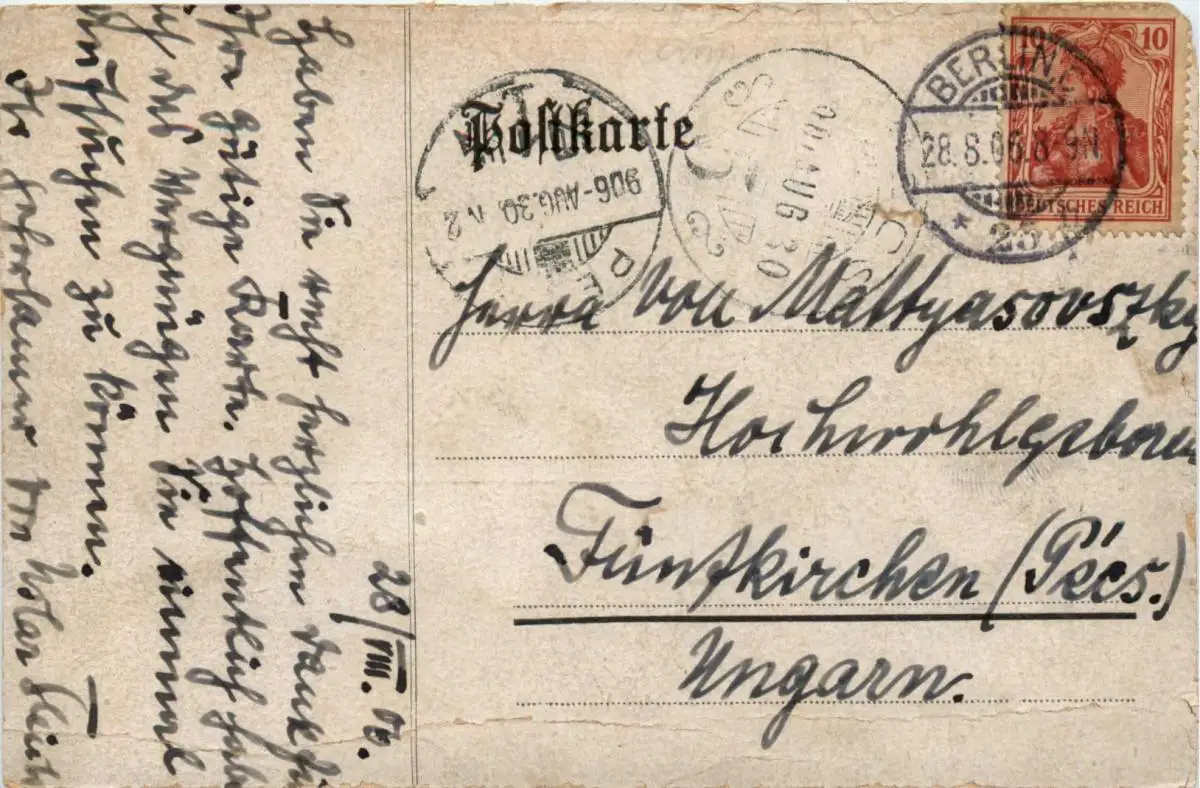 28/VIII. 06.
Haben Sie recht herzlichen Dank für
Ihre gütige Karte. Hoffentlich habe
ich das Vergnügen Sie einmal
zu können.
Ihr gehorsamer von
Postkarte
10
DEUTSCHES REICH
BERLIN
28.8.06.8-9N
* 25
906-AUG.30. N 2
PÉCS
906 AUG 30
PÉCS
Herrn von Mattyasovszky
Hochwohlgeboren
Fünfkirchen (Pécs.)
Ungarn.